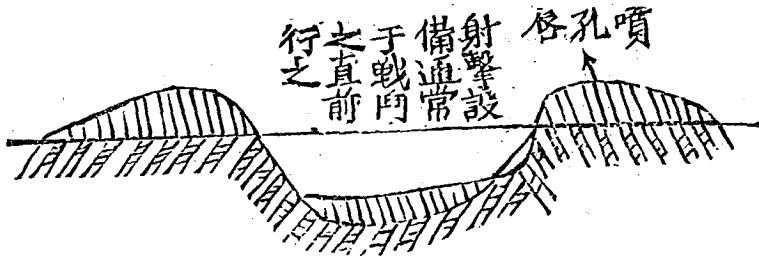 噴孔唇
射擊設
備通常
于戦鬥
之直前
行之